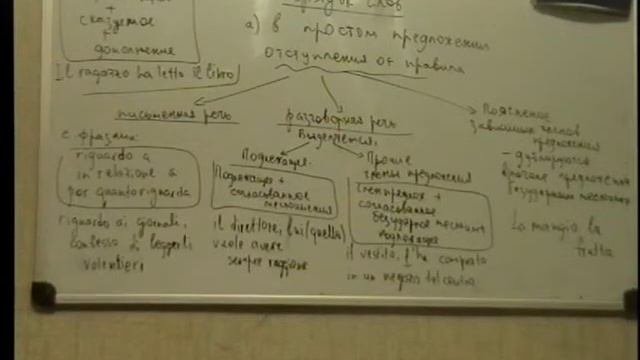 порядок слов
+
сказуемое
+
дополнение
Il ragazzo ha letto il libro
а) в простом предложении
отступления от правила
письменная речь
с фразами:
riguardo a
in relazione a
per quanto riguarda
riguardo ai giornali,
di leggerli
volentieri
разговорная речь
Выделяется:
Подлежащее
Подлежащее +
согласованное
местоимения
il direttore, lui (quello)
vuole avere
sempre ragione
Прочие
члены предложения
член предлож +
согласованное
безударное местоим +
подлежащее
il vestito, l'ho comprato
in un negozio del centro
Пояснение
зависимых членов
предложения
- дублируются
предложения
безударным местоим
La mangio la
frutta